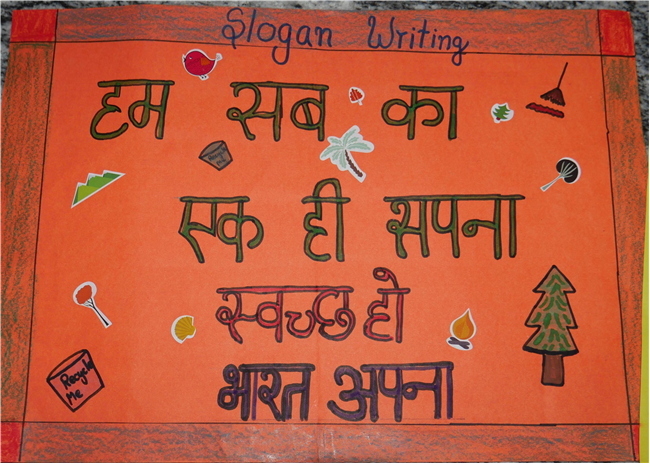 Slogan Writing
हम सब का
एक ही सपना
स्वच्छ हो
भारत अपना
Recycle
Me